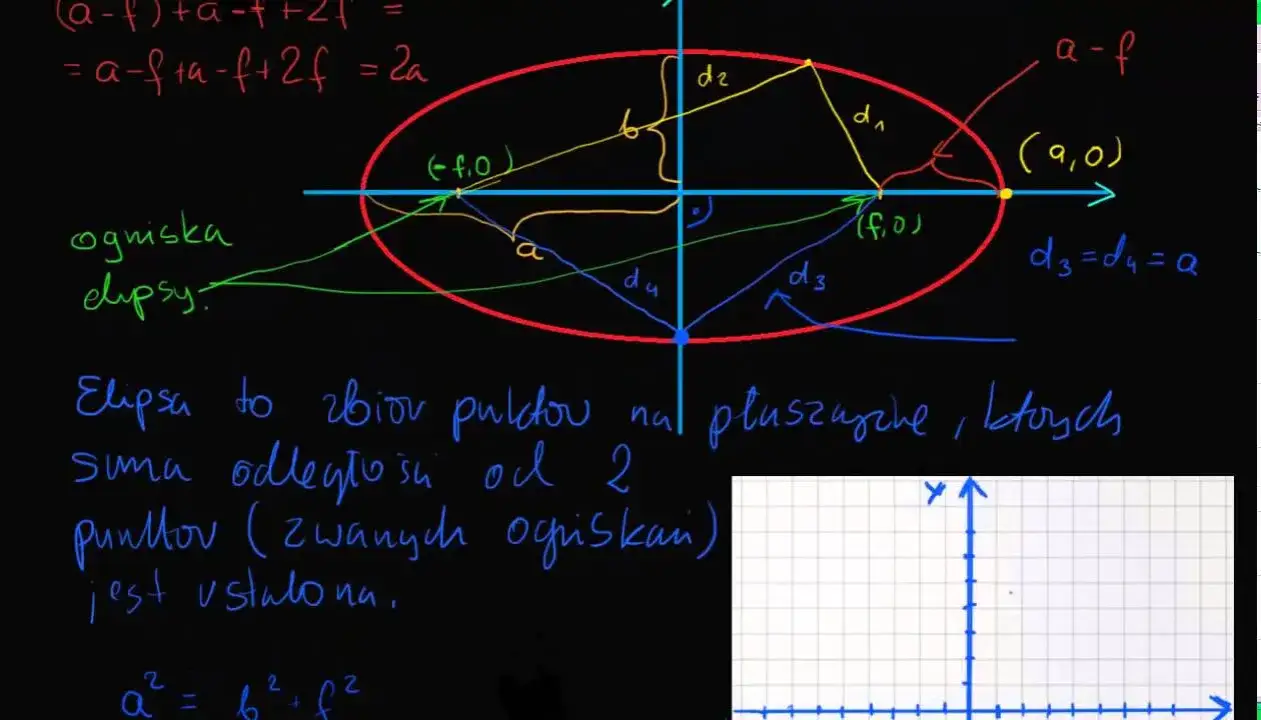 (a-f)+a-f+2f =
= a-f+a-f+2f = 2a
a-f
d₂
d₁
b
(a,0)
(-f,0)
(f,0)
ogniska
elipsy.
a
d₄
d₃
d₃=d₄=a
Elipsa to zbiov punktov na płaszczyźnie, których
suma odległości od 2
punktov (zwanych ogniskami)
jest ustalona.
y
a² = b² + f²